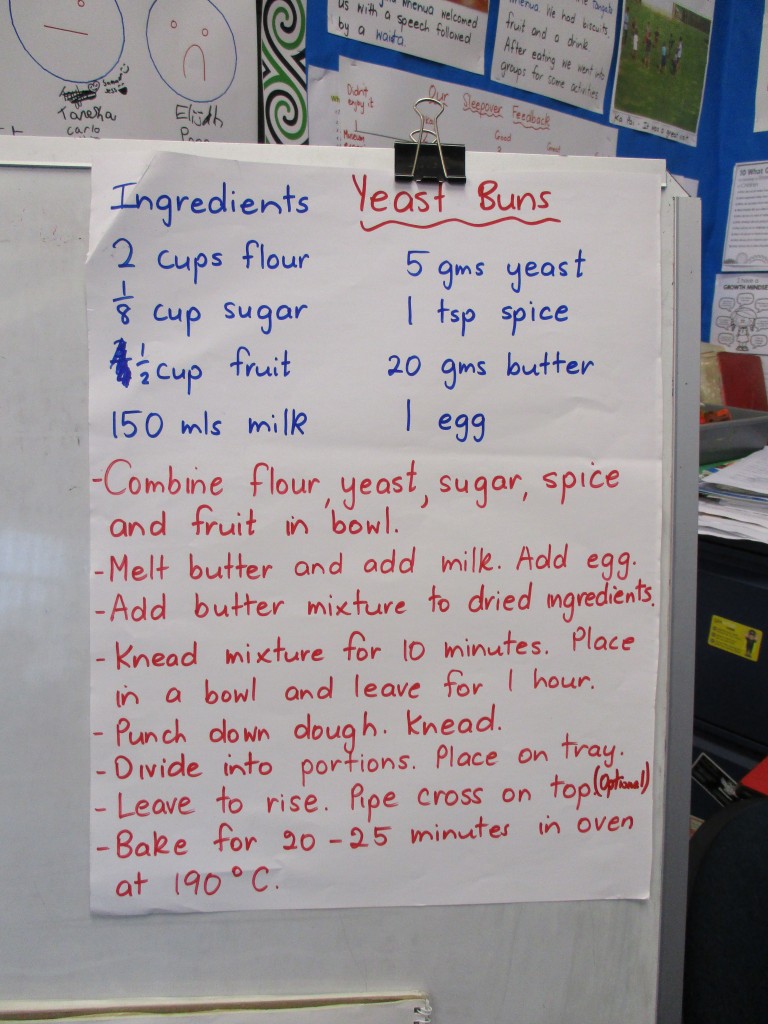 us with a speech followed
by a waiata.
whenua. We had biscuits,
fruit and a drink.
After eating we went into
groups for some activities.
Didn't
enjoy it
Our Sleepover Feedback
Good
Tanesha
Carlo
Elijah
GROWTH MINDSET
Ingredients Yeast Buns
2 cups flour 5 gms yeast
1/8 cup sugar 1 tsp spice
1/2 cup fruit 20 gms butter
150 mls milk 1 egg
-Combine flour, yeast, sugar, spice
and fruit in bowl.
-Melt butter and add milk. Add egg.
-Add butter mixture to dried ingredients.
- Knead mixture for 10 minutes. Place
in a bowl and leave for 1 hour.
- Punch down dough. Knead.
- Divide into portions. Place on tray.
- Leave to rise. Pipe cross on top (Optional)
- Bake for 20 - 25 minutes in oven
at 190°C.